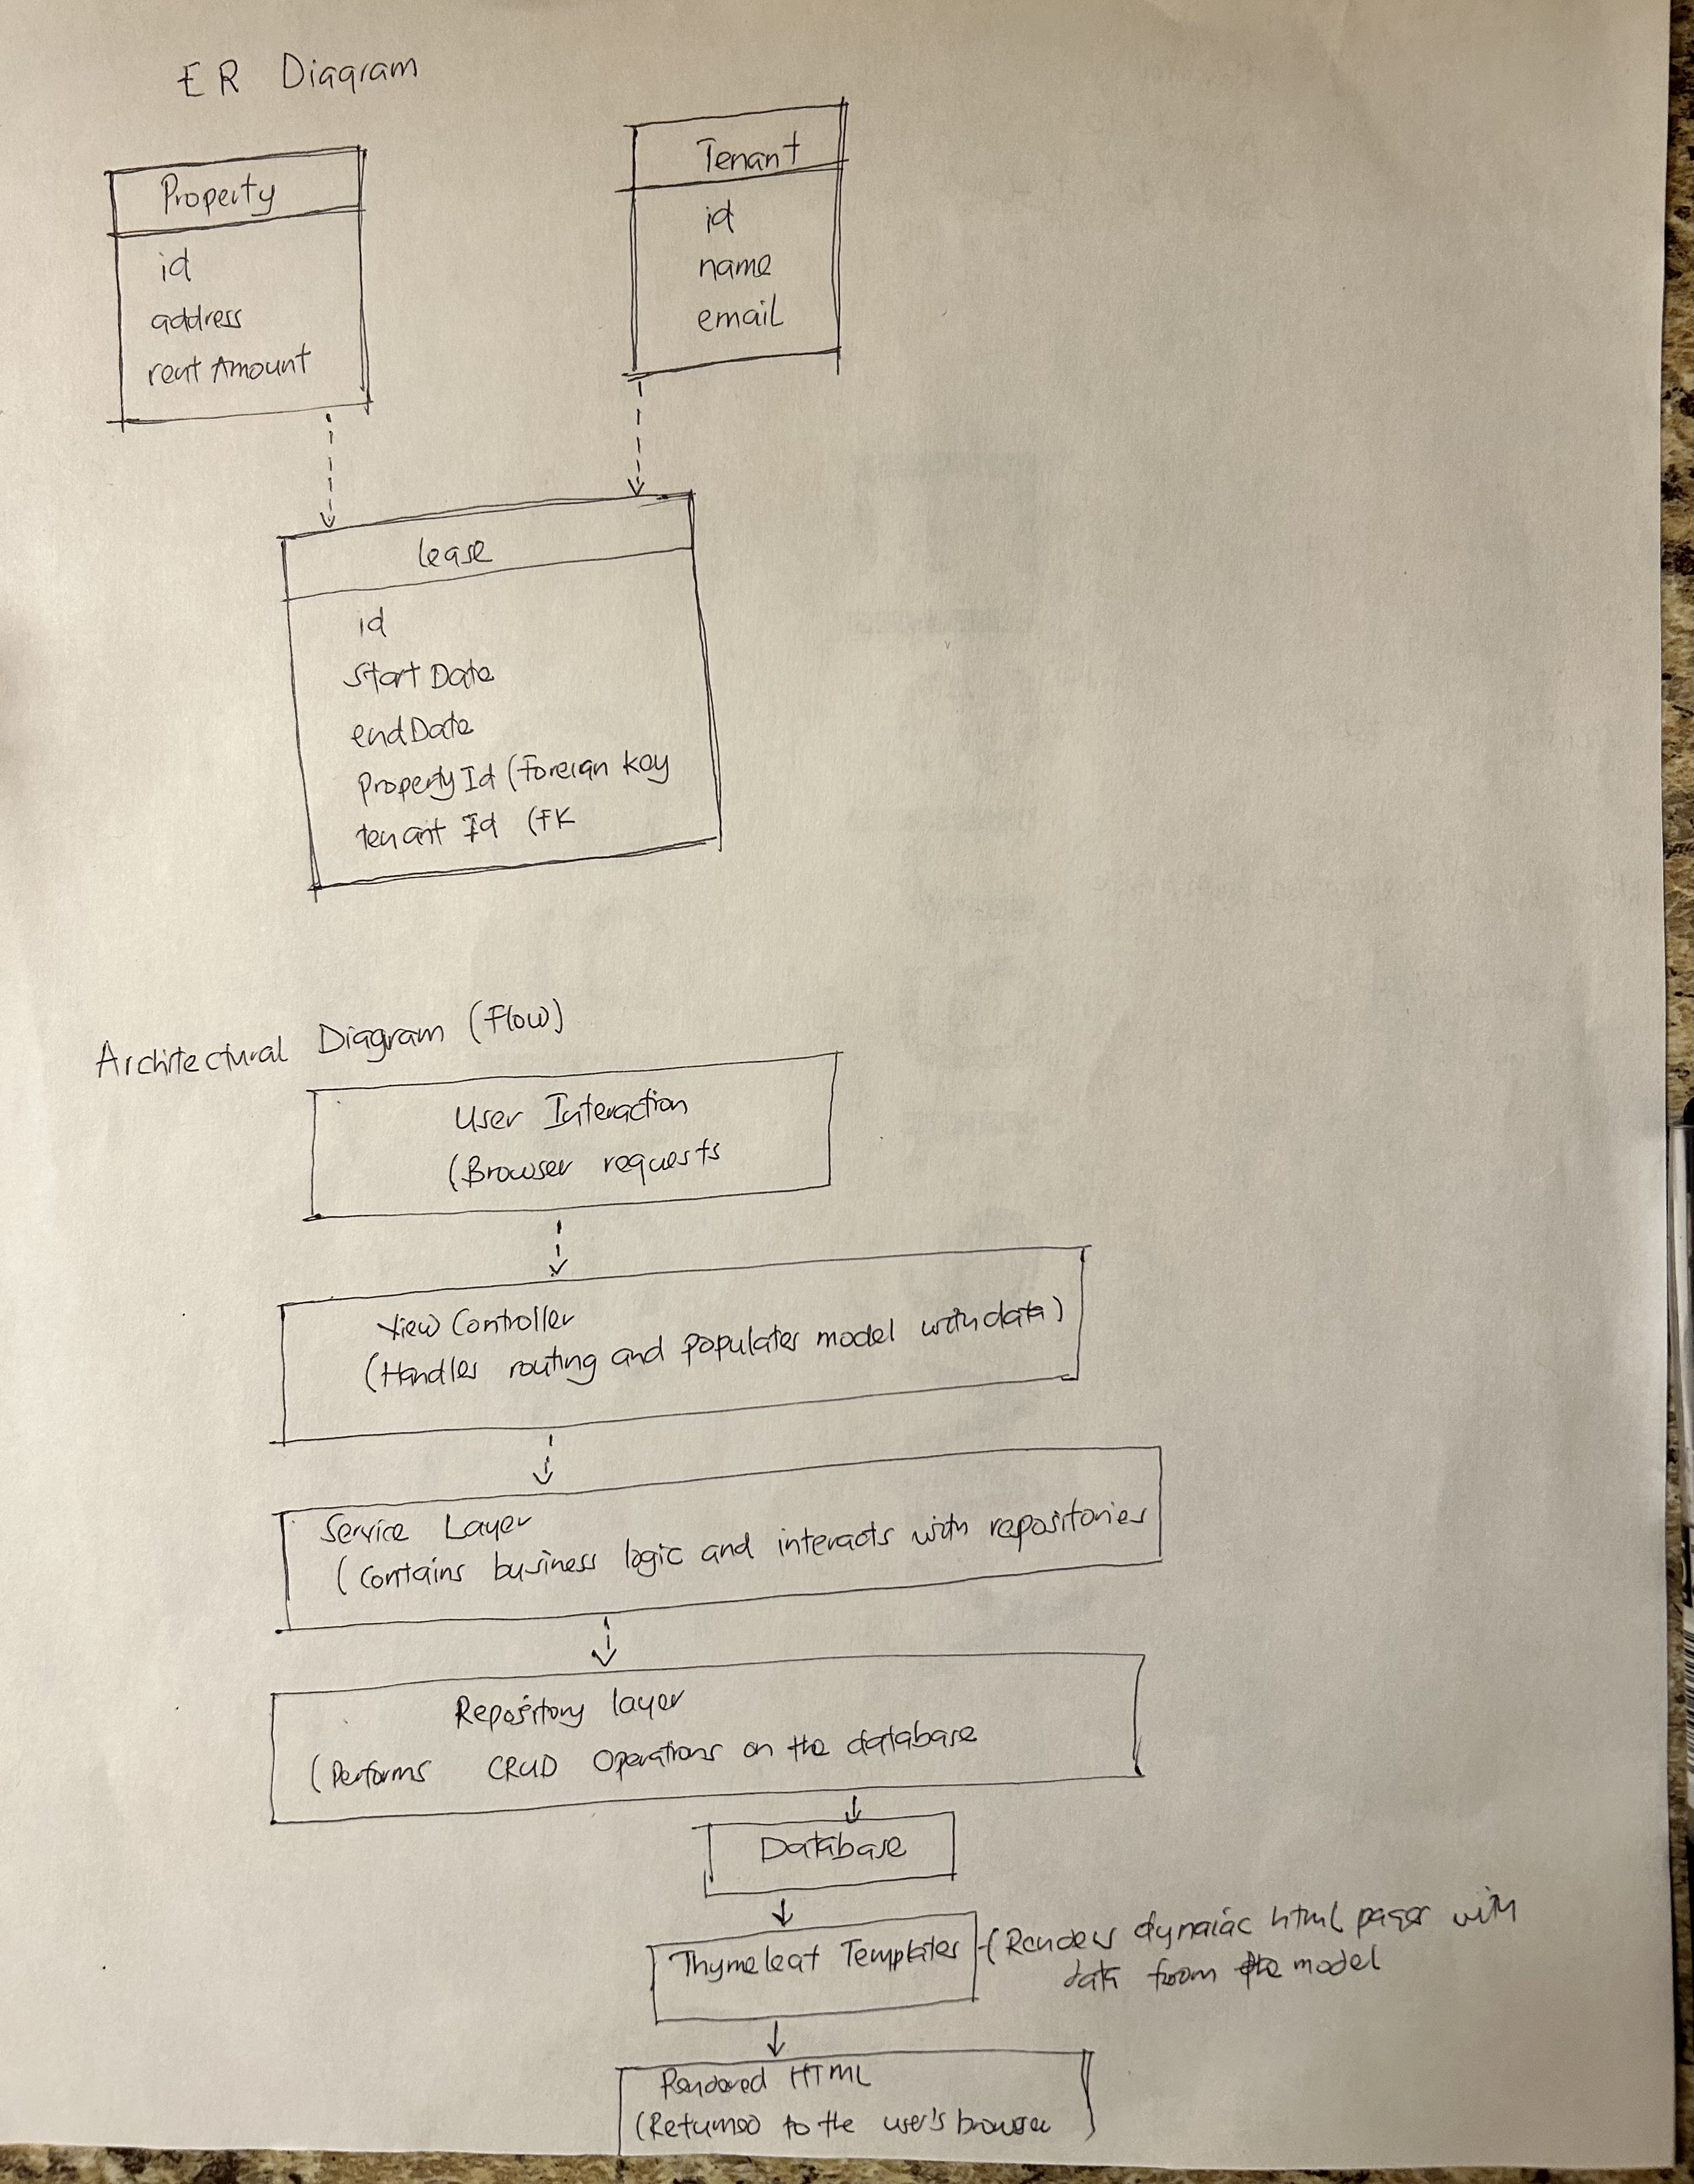 ER Diagram
Property
id
address
rent Amount
Tenant
id
name
email
lease
id
Start Date
endDate
PropertyId (Foreign key
tenant Id (FK
Architectural Diagram (Flow)
User Interaction
(Browser requests
View Controller
(Handles routing and populates model with data)
Service Layer
(contains business logic and interacts with repositories
Repository layer
(Performs CRUD Operations on the database
Database
Thymeleaf Templates
(Renders dynaic html pages with
data from the model
Rendered HTML
(Returned to the user's browser)